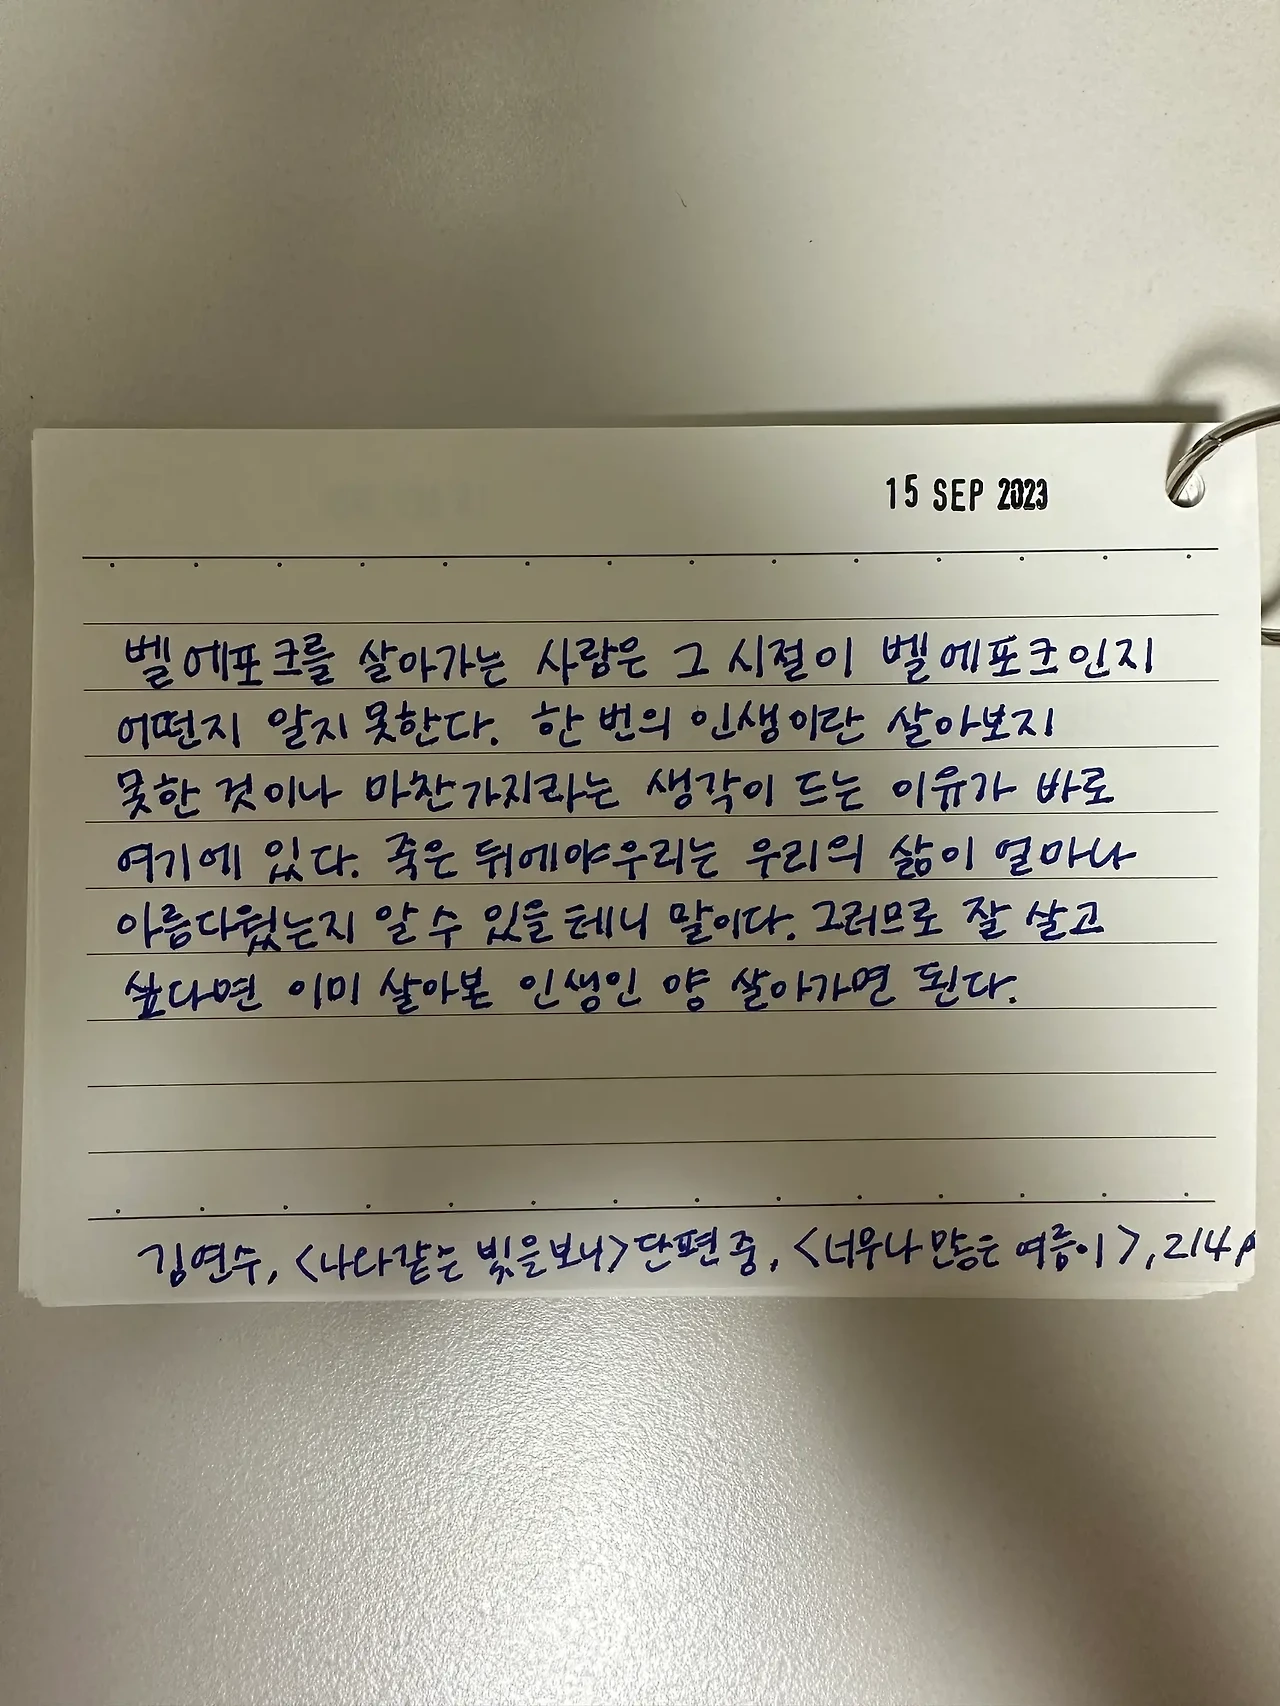 15 SEP 2023
벨 에포크를 살아가는 사람은 그 시절이 벨 에포크인지
어떤지 알지 못한다. 한 번의 인생이란 살아보지
못한 것이나 마찬가지라는 생각이 드는 이유가 바로
여기에 있다. 죽은 뒤에야 우리는 우리의 삶이 얼마나
아름다웠는지 알 수 있을 테니 말이다. 그러므로 잘 살고
싶다면 이미 살아본 인생인 양 살아가면 된다.
김연수, <나와 같은 빛을 보니> 단편 중, <너무나 많은 여름이>, 214p